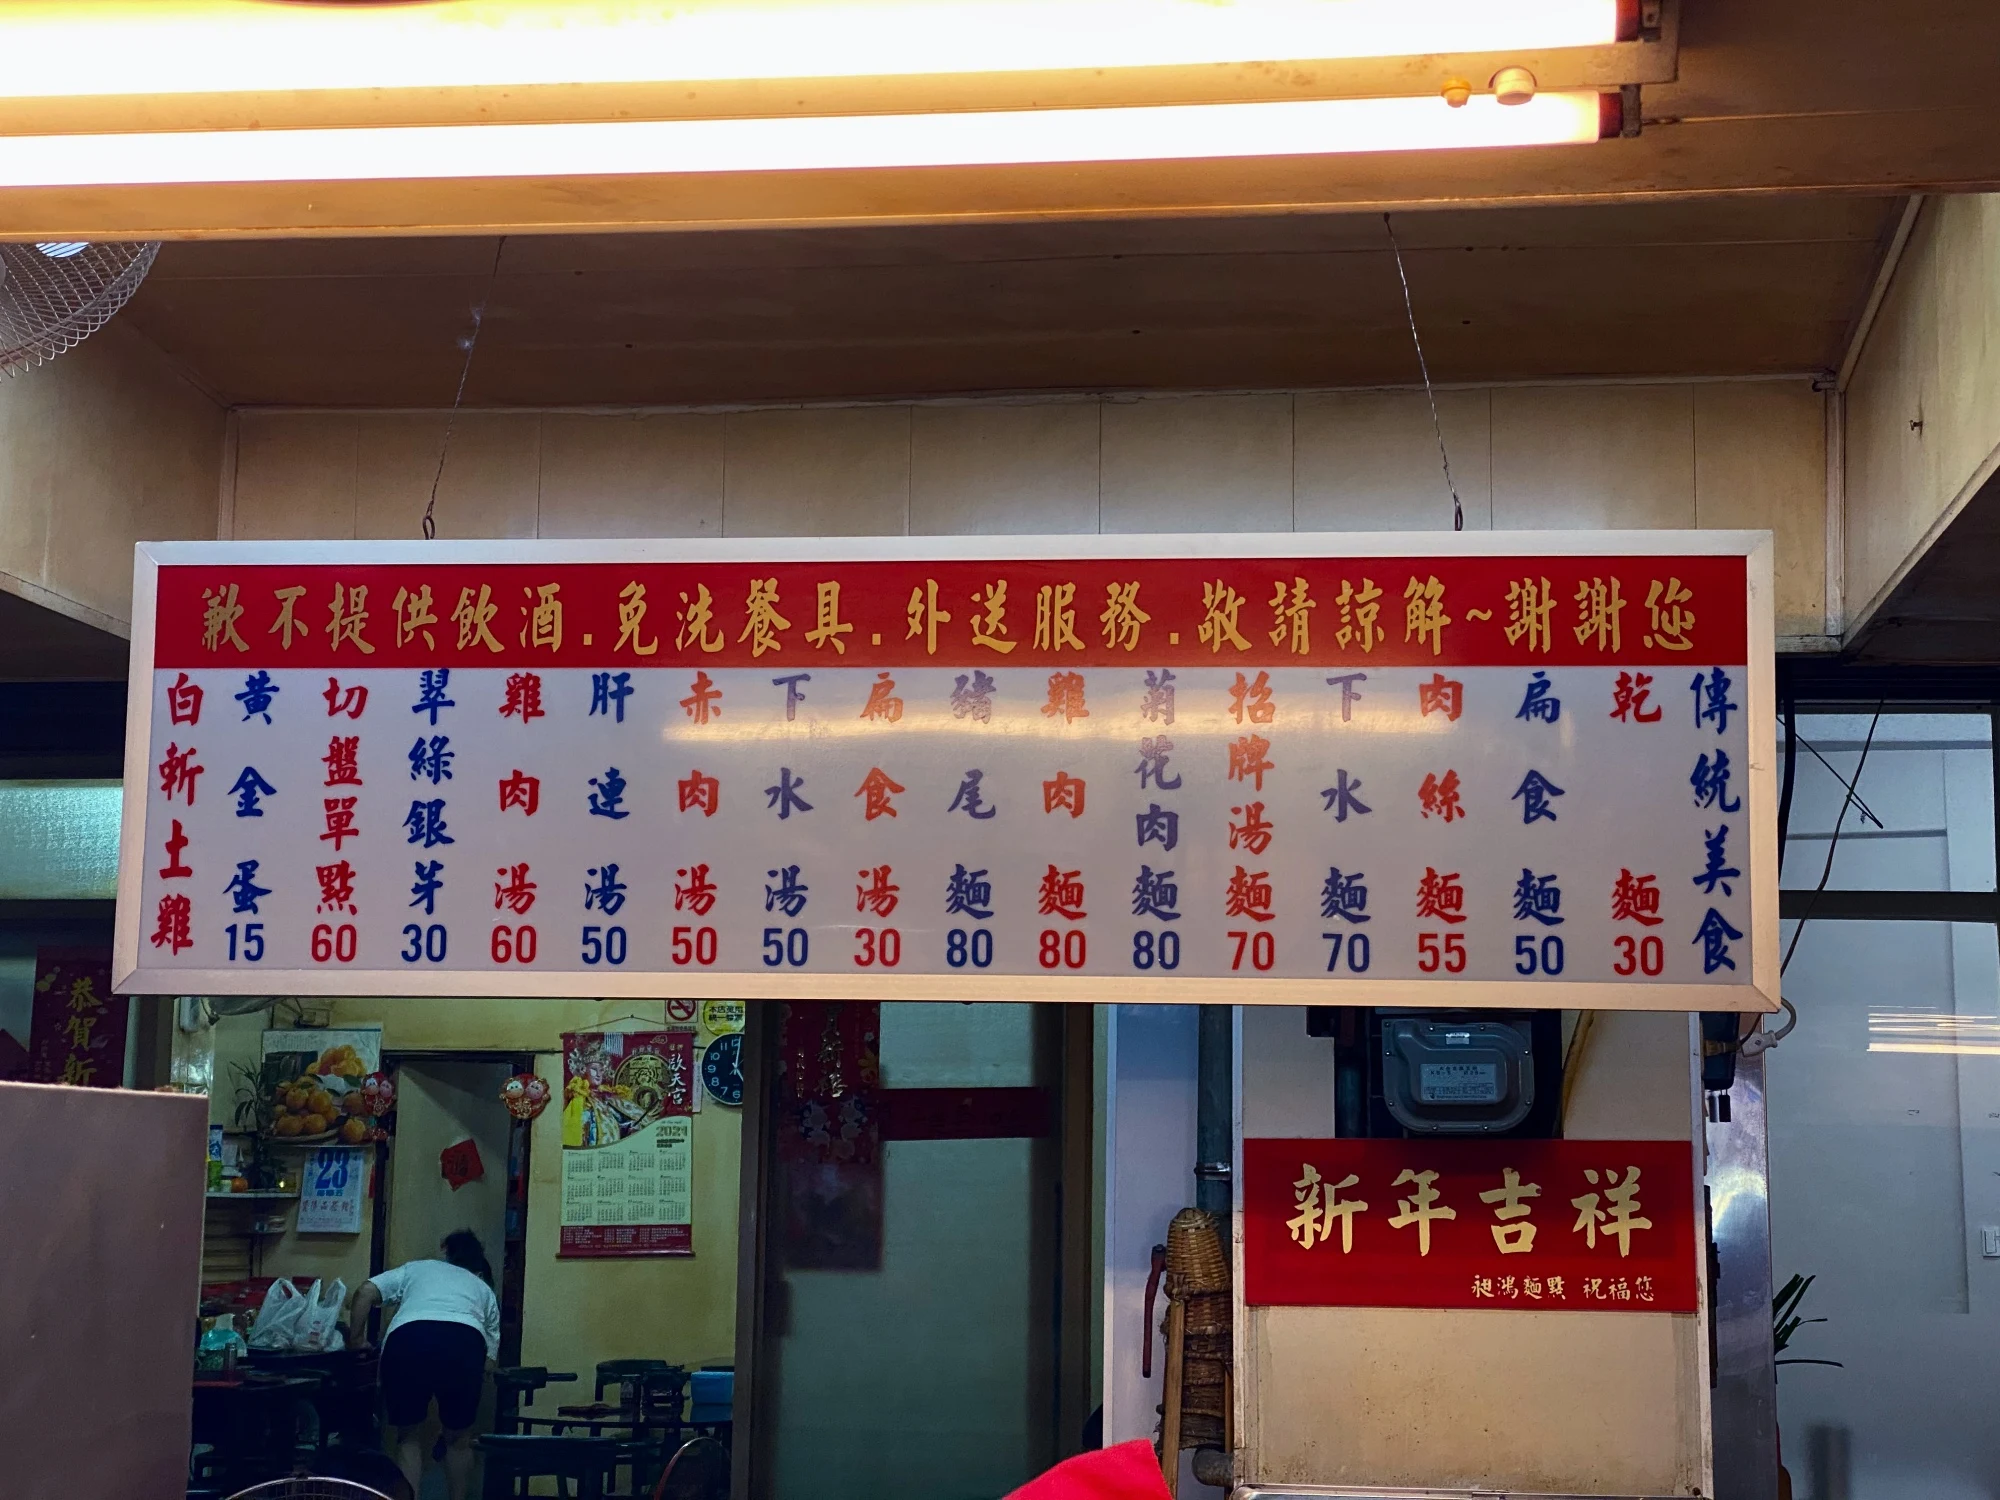 歉不提供飲酒.免洗餐具.外送服務.敬請諒解~謝謝您
傳統美食
乾麵30
扁食麵50
肉絲麵55
下水麵70
招牌湯麵70
菊花肉麵80
雞肉麵80
豬尾麵80
扁食湯30
下水湯50
赤肉湯50
肝連湯50
雞肉湯60
翠綠銀芽30
切盤單點60
黃金蛋15
白斬土雞
恭賀新
啟天宮
2024
23
新年吉祥
昶鴻麵點 祝福您